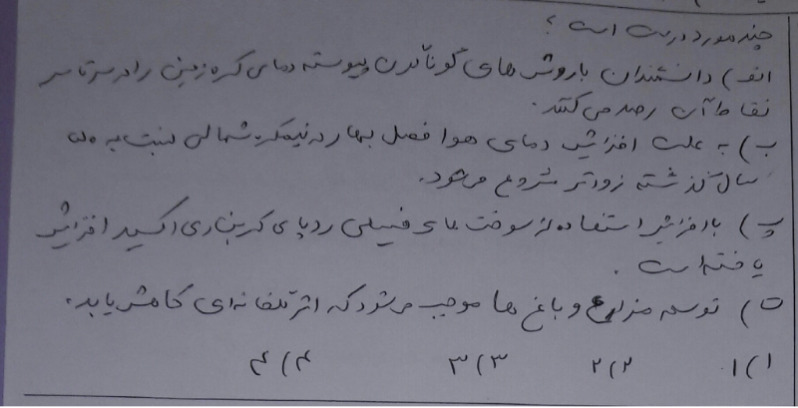 چند مورد درست است ؟
الف) دانشمندان با روش های گوناگون پیوسته دمای کره زمین را در سرتاسر
نقاط آن رصد می کنند.
ب) به علت افزایش دمای هوا فصل بهار در نیمکره شمالی نسبت به ۵۰
سال گذشته زودتر شروع می شود.
پ) با افزایش استفاده از سوخت های فسیلی ردپای کربن دی اکسید افزایش
یافته است .
ت) توسعه مزارع و باغ ها موجب می شود که اثر گلخانه ای کاهش یابد.
۱) ۱ ۲) ۲ ۳) ۳ ۴) ۴